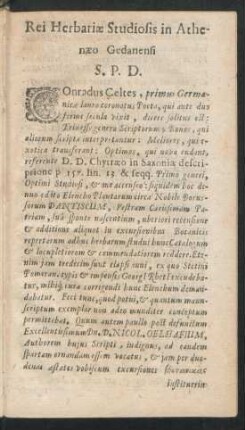 Rei Herbariæ Studiosis in Athe-
næo Gedanensi
S. P. D.
COnradus Celtes, primus Germa-
niæ laurea coronatus Poeta, qui ante duo
ferme secula vixit, dicere solitus est:
genera Scriptorum; Bonos, qui
aliorum scripta interpretantur: Meliores, qui
transferunt: Optimos, qui nova cudant,
referente D. D. Chytræo in Saxoniæ descri-
ptione p 157. lin. 13 & seqq. Primi generis,
Optimi Studiosi, & siquidem hoc de-
nuo edito Elencho Plantarum circa Nobile Borus-
sorum DANTISCUM, Vestram Carissimam Pa-
triam, suâ sponte nascentium, uberiori recensione
& additione aliquot in excursionibus Botanicis
repertarum adhuc herbarum studui hunc Catalogum
& locupletiorem & commendatiorem reddere. Et-
enim jam tredecim sunt elapsi anni, ex quo Stetini
Pomeran. typis & impensis Georgl Rhetii Typogr.
hunc Elenchum deman-
dabatur. Feci tunc, quod potui, & quantum manu-
scriptum exemplar non adeo munditer conceptum
permittebat. Quum autem paullo post defunctum
Excellentissimum Dn. D. NICOL. OELHAFIUM,
Authorem hujus Scripti, indignus, ad eandem
spartam ornandam essem vocatus, & jam per duo-
denas æstates vobiscum excursiones
instituerim